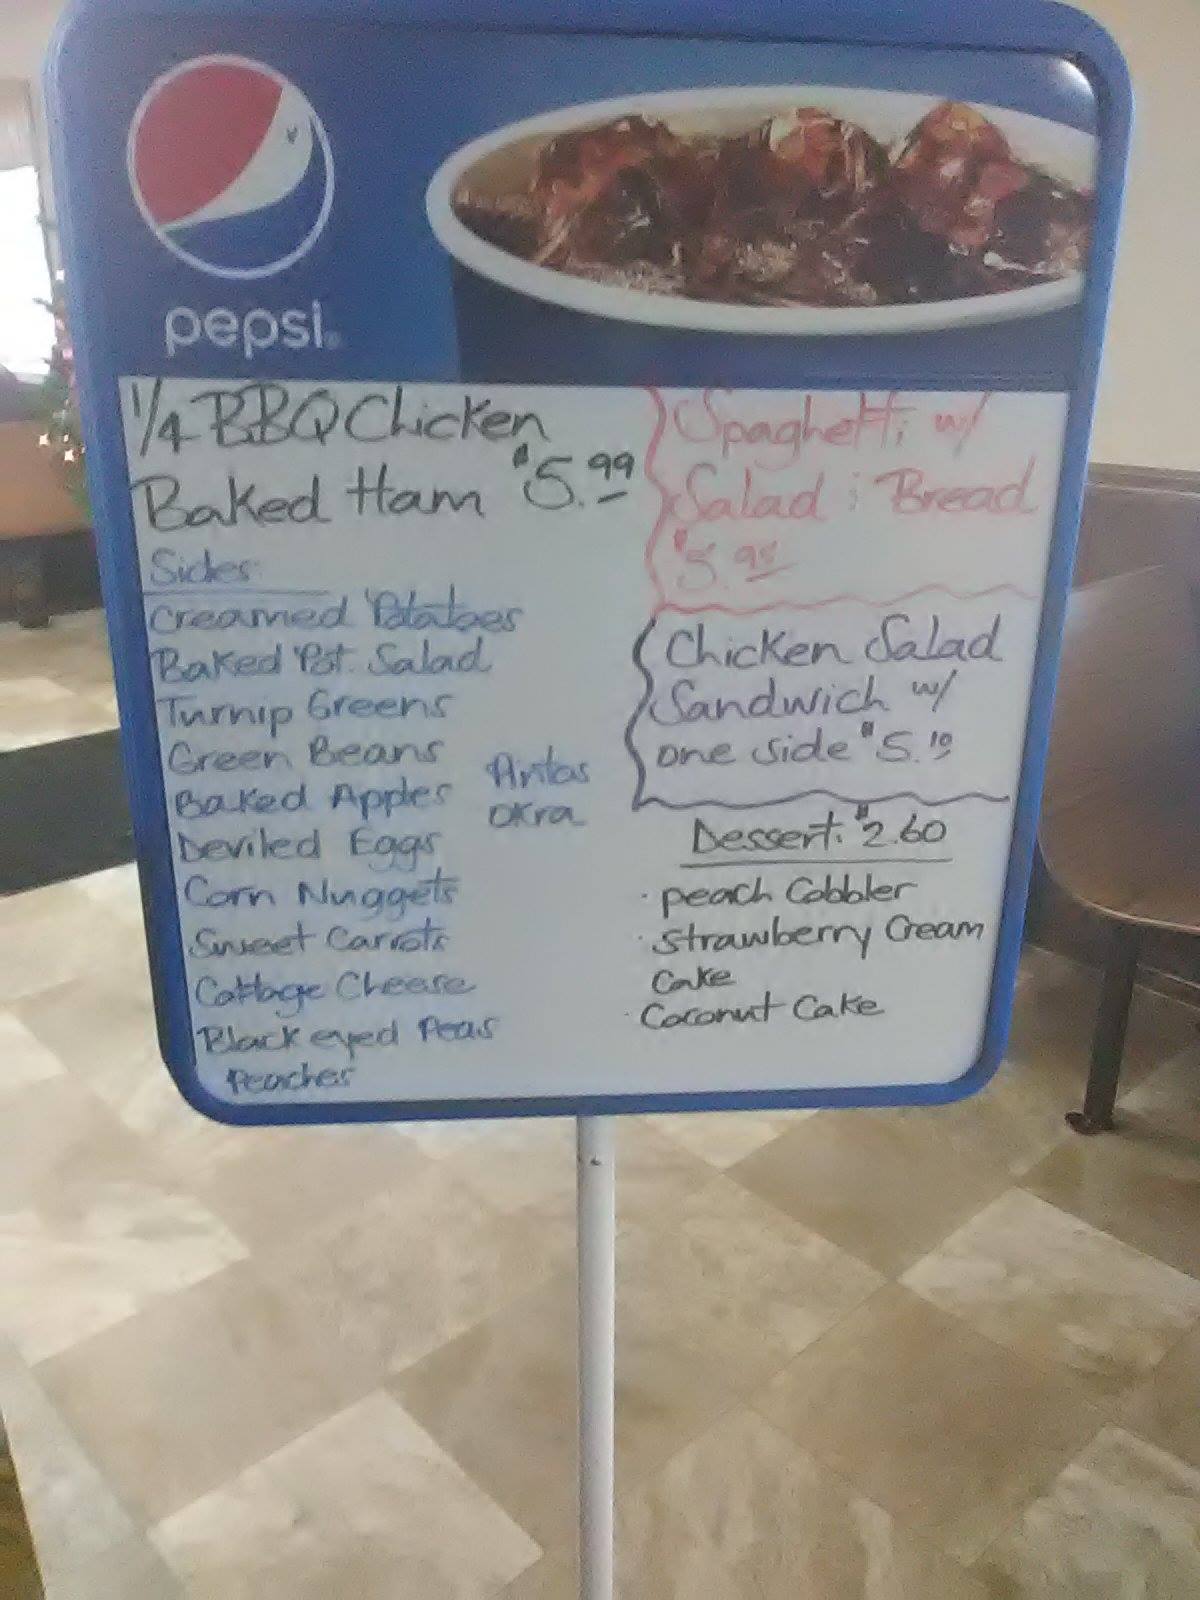 pepsi
1/4 BBQ Chicken
Baked Ham $5.99
Sides:
Creamed Potatoes
Baked Pot. Salad
Turnip Greens
Green Beans
Baked Apples
Deviled Eggs
Corn Nuggets
Sweet Carrots
Cottage Cheese
Black eyed Peas
Peaches
Pintos
Okra
Spaghetti w/
Salad & Bread
Chicken Salad
Sandwich w/
one side $5.10
Dessert: $2.60
· peach Cobbler
· Strawberry Cream
Cake
· Coconut Cake